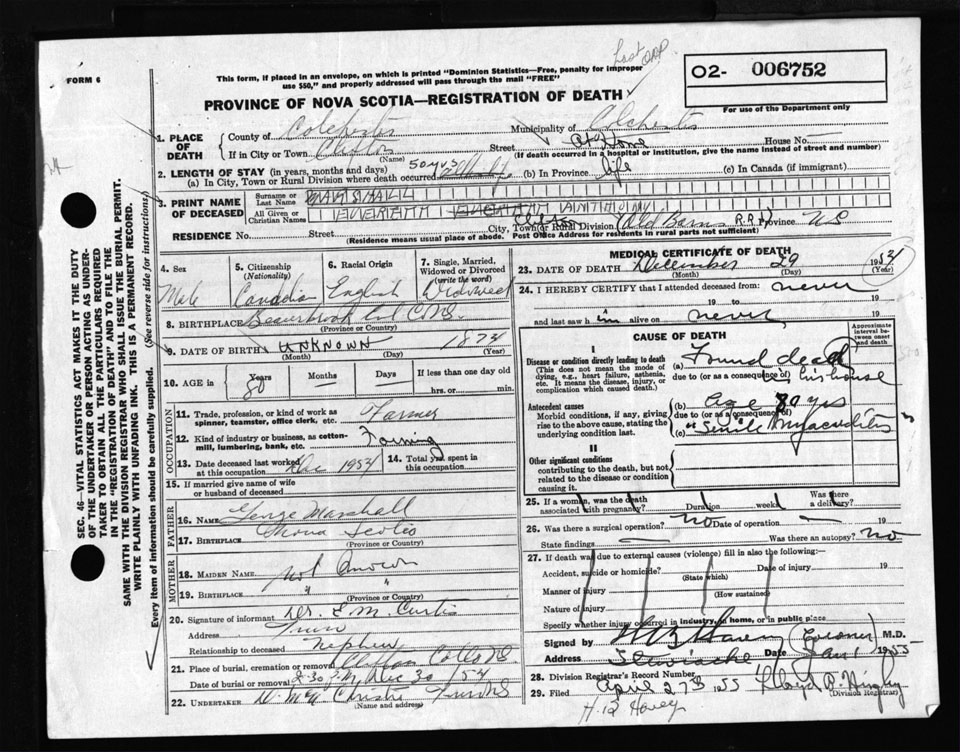 FORM 6
This form, if placed in an envelope, on which is printed "Dominion Statistics—Free, penalty for improper
use $50," and properly addressed will pass through the mail "FREE"
O2- 006752
For use of the Department only
PROVINCE OF NOVA SCOTIA—REGISTRATION OF DEATH
SEC. 46—VITAL STATISTICS ACT MAKES IT THE DUTY
OF THE UNDERTAKER OR PERSON ACTING AS UNDER-
TAKER TO OBTAIN ALL THE PARTICULARS REQUIRED
IN THE "REGISTRATION OF DEATH" AND TO FILE THE
SAME WITH THE DIVISION REGISTRAR WHO SHALL ISSUE THE BURIAL PERMIT.
WRITE PLAINLY WITH UNFADING INK. THIS IS A PERMANENT RECORD.
Every item of information should be carefully supplied. (See reverse side for instructions)
1. PLACE OF DEATH
County of Colchester Municipality of Colchester
If in City or Town Clifton Street House No.
(Name) (If death occurred in a hospital or institution, give the name instead of street and number)
2. LENGTH OF STAY (in years, months and days)
(a) In City, Town or Rural Division where death occurred 50 yrs (b) In Province life (c) In Canada (if immigrant)
3. PRINT NAME OF DECEASED
Surname or Last Name MARSHALL
All Given or Christian Name
RESIDENCE No. Street City, Town or Rural Division Old Barns R.R.1 Province N S
(Residence means usual place of abode. Post Office Address for residents in rural parts not sufficient)
4. Sex Male
5. Citizenship (Nationality) Canadian
6. Racial Origin English
7. Single, Married, Widowed or Divorced (write the word) Widowed
8. BIRTHPLACE Beaverbrook Col Co N.S.
(Province or Country)
9. DATE OF BIRTH UNKNOWN 1874
(Month) (Day) (Year)
10. AGE in Years 80 Months — Days If less than one day old
hrs. or min.
OCCUPATION
11. Trade, profession, or kind of work as spinner, teamster, office clerk, etc. Farmer
12. Kind of industry or business, as cotton-mill, lumbering, bank, etc. Farming
13. Date deceased last worked at this occupation Dec 1954
14. Total spent in this occupation
15. If married give name of wife or husband of deceased
FATHER
16. NAME George Marshall
17. BIRTHPLACE Nova Scotia
(Province or Country)
MOTHER
18. MAIDEN NAME Not Known
19. BIRTHPLACE " "
(Province or Country)
20. Signature of informant E. M. Curtis
Address Truro
Relationship to deceased Nephew
21. Place of burial, cremation or removal Clifton Col Co N.S.
Date of burial or removal 2:30 P.M. Dec 30/54
22. UNDERTAKER Christie Truro NS
(Name and address)
MEDICAL CERTIFICATE OF DEATH
23. DATE OF DEATH December 29 1954
(Month) (Day) (Year)
24. I HEREBY CERTIFY that I attended deceased from: never
19 to 19
and last saw him alive on never 19
CAUSE OF DEATH
Approximate interval between onset and death
I
Disease or condition directly leading to death
(This does not mean the mode of dying, e.g., heart failure, asthenia, etc. It means the disease, injury, or complication which caused death.)
(a) Found dead
due to (or as a consequence of) in his house
Antecedent causes
Morbid conditions, if any, giving rise to the above cause, stating the underlying condition last.
(b) Age 80 yrs
due to (or as a consequence of)
(c) Senile Myocarditis
II
Other significant conditions contributing to the death, but not related to the disease or condition causing it.
25. If a woman, was the death associated with pregnancy? Duration weeks Was there a delivery?
26. Was there a surgical operation? no Date of operation — 19
State findings — Was there an autopsy? no
27. If death was due to external causes (violence) fill in also the following:—
Accident, suicide or homicide? Date of injury 19
(State which)
Manner of injury
(How sustained)
Nature of injury
Specify whether injury occurred in industry, in home, or in public place
Signed by H B Havey (Coroner) M.D.
Address Stewiacke Date Jan 1 1955
28. Division Registrar's Record Number
29. Filed April 27th 1955 Lloyd R.
(Division Registrar)
H. B Havey